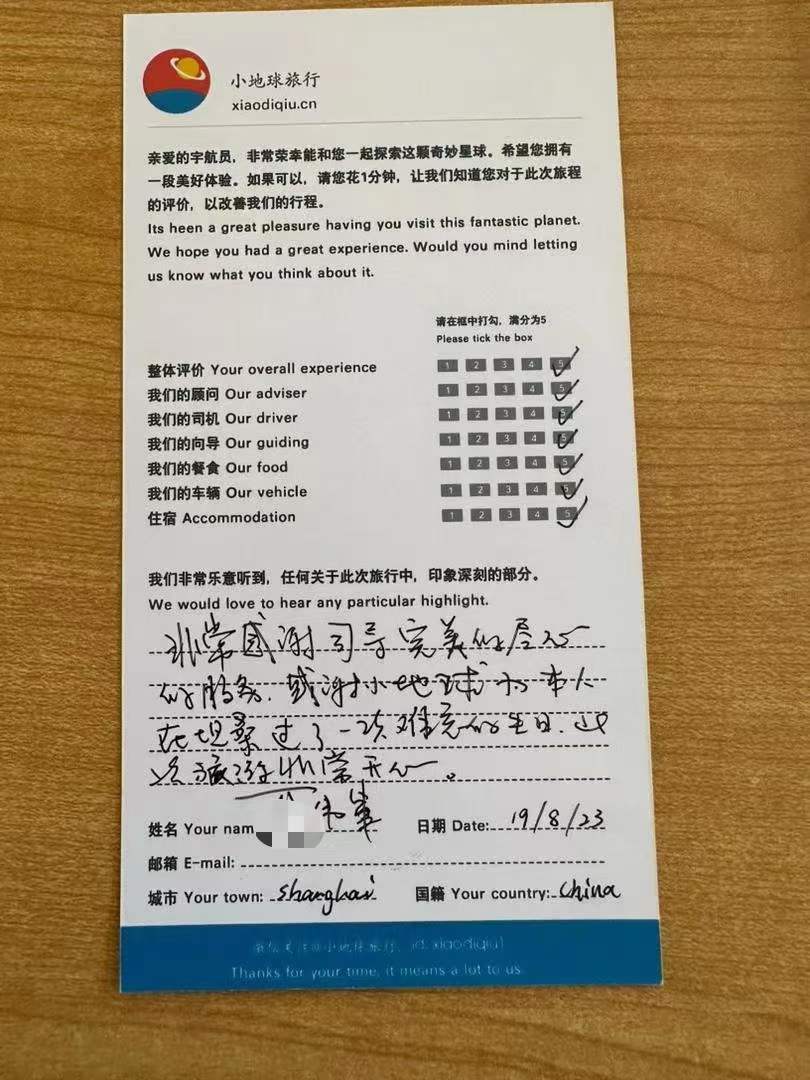 小地球旅行
xiaodiqiu.cn
亲爱的宇航员，非常荣幸能和您一起探索这颗奇妙星球。希望您拥有
一段美好体验。如果可以，请您花1分钟，让我们知道您对于此次旅程
的评价，以改善我们的行程。
Its heen a great pleasure having you visit this fantastic planet.
We hope you had a great experience. Would you mind letting
us know what you think about it.
请在框中打勾，满分为5
Please tick the box
整体评价 Your overall experience 1 2 3 4 5
我们的顾问 Our adviser 1 2 3 4 5
我们的司机 Our driver 1 2 3 4 5
我们的向导 Our guiding 1 2 3 4 5
我们的餐食 Our food 1 2 3 4 5
我们的车辆 Our vehicle 1 2 3 4 5
住宿 Accommodation 1 2 3 4 5
我们非常乐意听到，任何关于此次旅行中，印象深刻的部分。
We would love to hear any particular highlight.
非常感谢司导完美的尽心
的服务，感谢小地球为本人
在坦桑过了一次难忘的生日，此
次旅游非常开心。
姓名 Your nam 日期 Date: 19/8/23
邮箱 E-mail:
城市 Your town: Shanghai 国籍 Your country: China
微信关注@小地球旅行，id: xiaodiqiu1
Thanks for your time, it means a lot to us